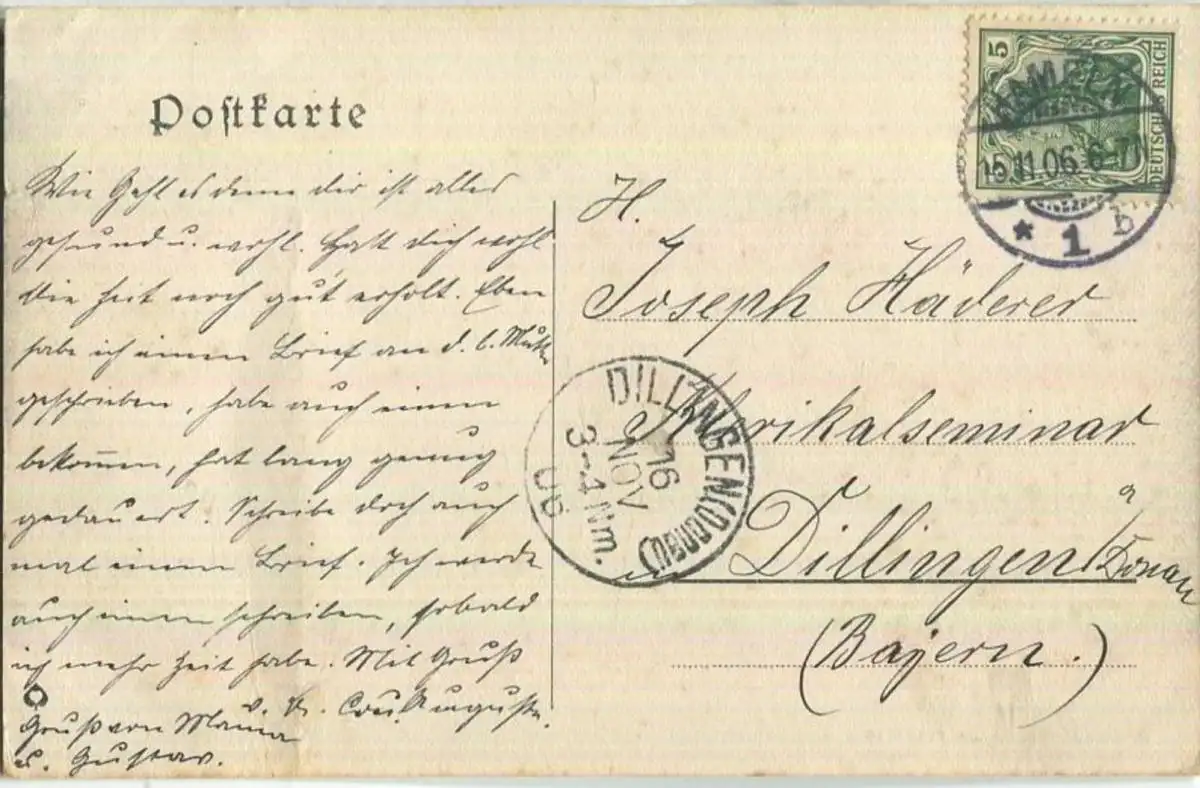 Postkarte
5
DEUTSCHES REICH
HAMELN
15.11.06. 6-7
* 1 b
Wie geht es denn dir ist alles
gesund u. wohl. Hast dich wohl
die Zeit noch gut erholt. Eben
habe ich einen Brief an d. l. Mutter
geschrieben, habe auch einen
bekommen, hat lang genug
gedauert. Schreibe doch auch
mal einen Brief. Ich werde
auch einen schreiben, sobald
ich mehr Zeit habe. Mit Gruß
v. d. Auguste.
Gruß von Mama
u. Gustav.
H.
Joseph Häderer
Klerikalseminar
in Dillingen a/Donau
(Bayern.)
DILLINGEN (DONAU)
16
NOV
3-4 Nm.
06